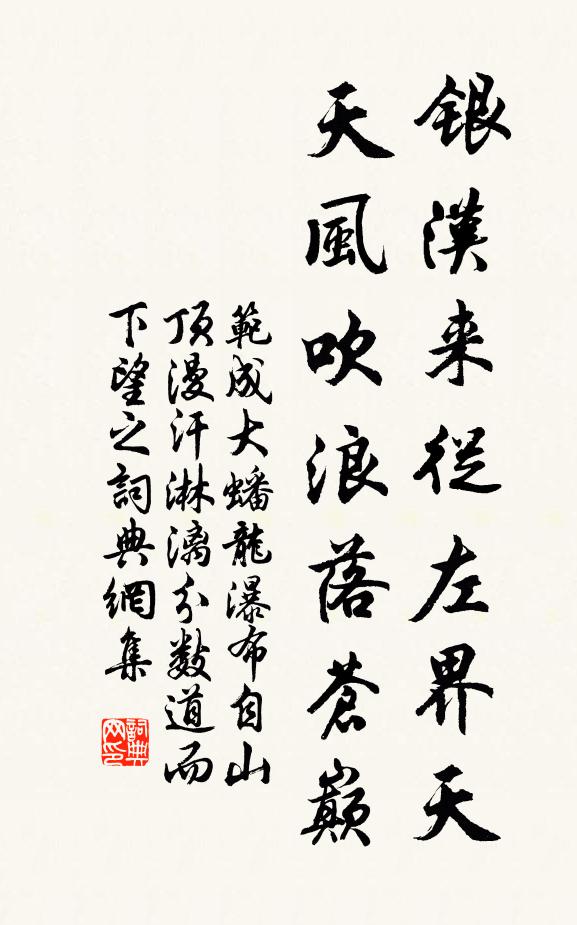 銀漢来從左界天
天風吹浪落蒼巔
範成大蟠龍瀑布自山
頂漫汗淋漓分數道而
下望之詞典網集
詞典网印